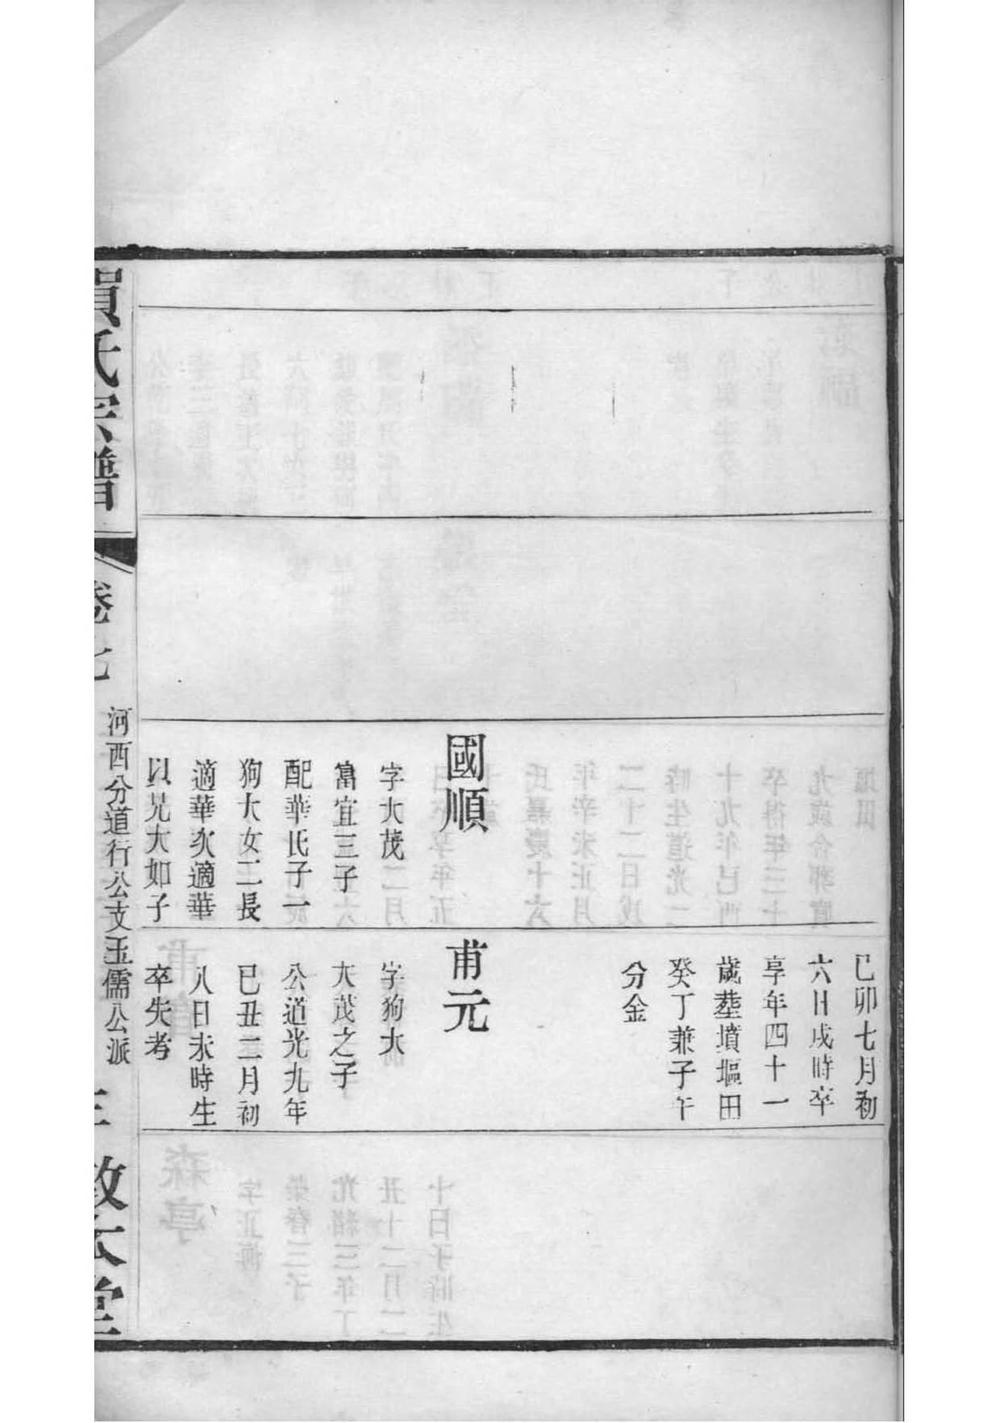 國順
字大茂
富宜三子
配華氏子一
狗大女二長
適華次適華
以兄大如子
己卯七月初
六日戌時卒
享年四十一
歲塟墳堰田
癸丁兼子午
分金
甫元
字狗大
大茂之子
公道光九年
己丑二月初
八日未時生
卒失考
氏宗譜
卷七
河西分道行公支玉儒公派
三
敬本堂